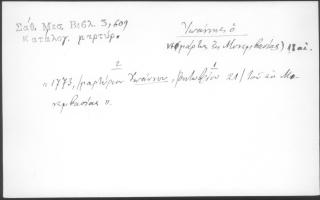 Σάθ. Μεσ. Βιβλ. 3,609
Καταλογ. μαρτύρ.
Ἰωάννης ὁ
νεομάρτυς ἐκ Μονεμβασίας) 18 αἰ.
2 1
"1773, μαρτύριον Ἰωάννου, Ὀκτωβρίου 21/ τοῦ ἐκ Μο-
νεμβασίας".